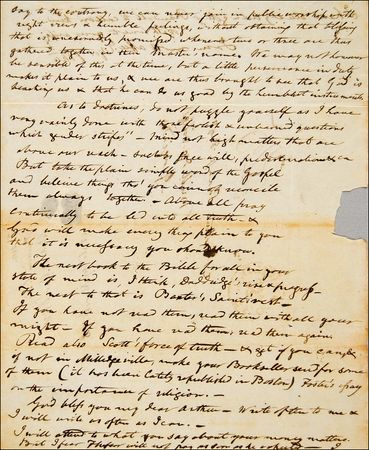 say to the contrary, we can never join in public worship with
right views & humble feelings, without obtaining that blessing
that is graciously promised whenever two or three are thus
gathered together in their Master's name. We may not however
be sensible of this at the time, but a little perseverance in duty
makes it plain to us, & we are thus brought to see that God is
blessing us & that he can do us good by the humblest instruments
As to Doctrines, do not puzzle yourself as I have
very vainly done with those "foolish & unlearned questions
which gender strifes" — Mind not high matters that are
above our reach — such as free will, predestination &c &c
But take the plain simple word of the Gospel
and believe things tho' you cannot reconcile
them always together. — Above all pray
continually to be led into all truth — &
God will make every thing plain to you
that it is necessary you should know.
The next book to the Bible for all in your
state of mind is, I think, Doddridge's rise & progress —
The next to that is Baxter's Saints rest —
If you have not read them, read them with all your
might — If you have read them, read them again.
Read also Scott's force of truth — & get if you can, &
if not in Milledgeville, make your Bookseller send for some
of them (it has been lately republished in Boston) Foster's essay
on the importance of religion. —
God bless you my dear Arthur — Write often to me &
I will write as often as I can. —
I will attend to what you say about your money matters.
But I fear will not pay as soon as he — I